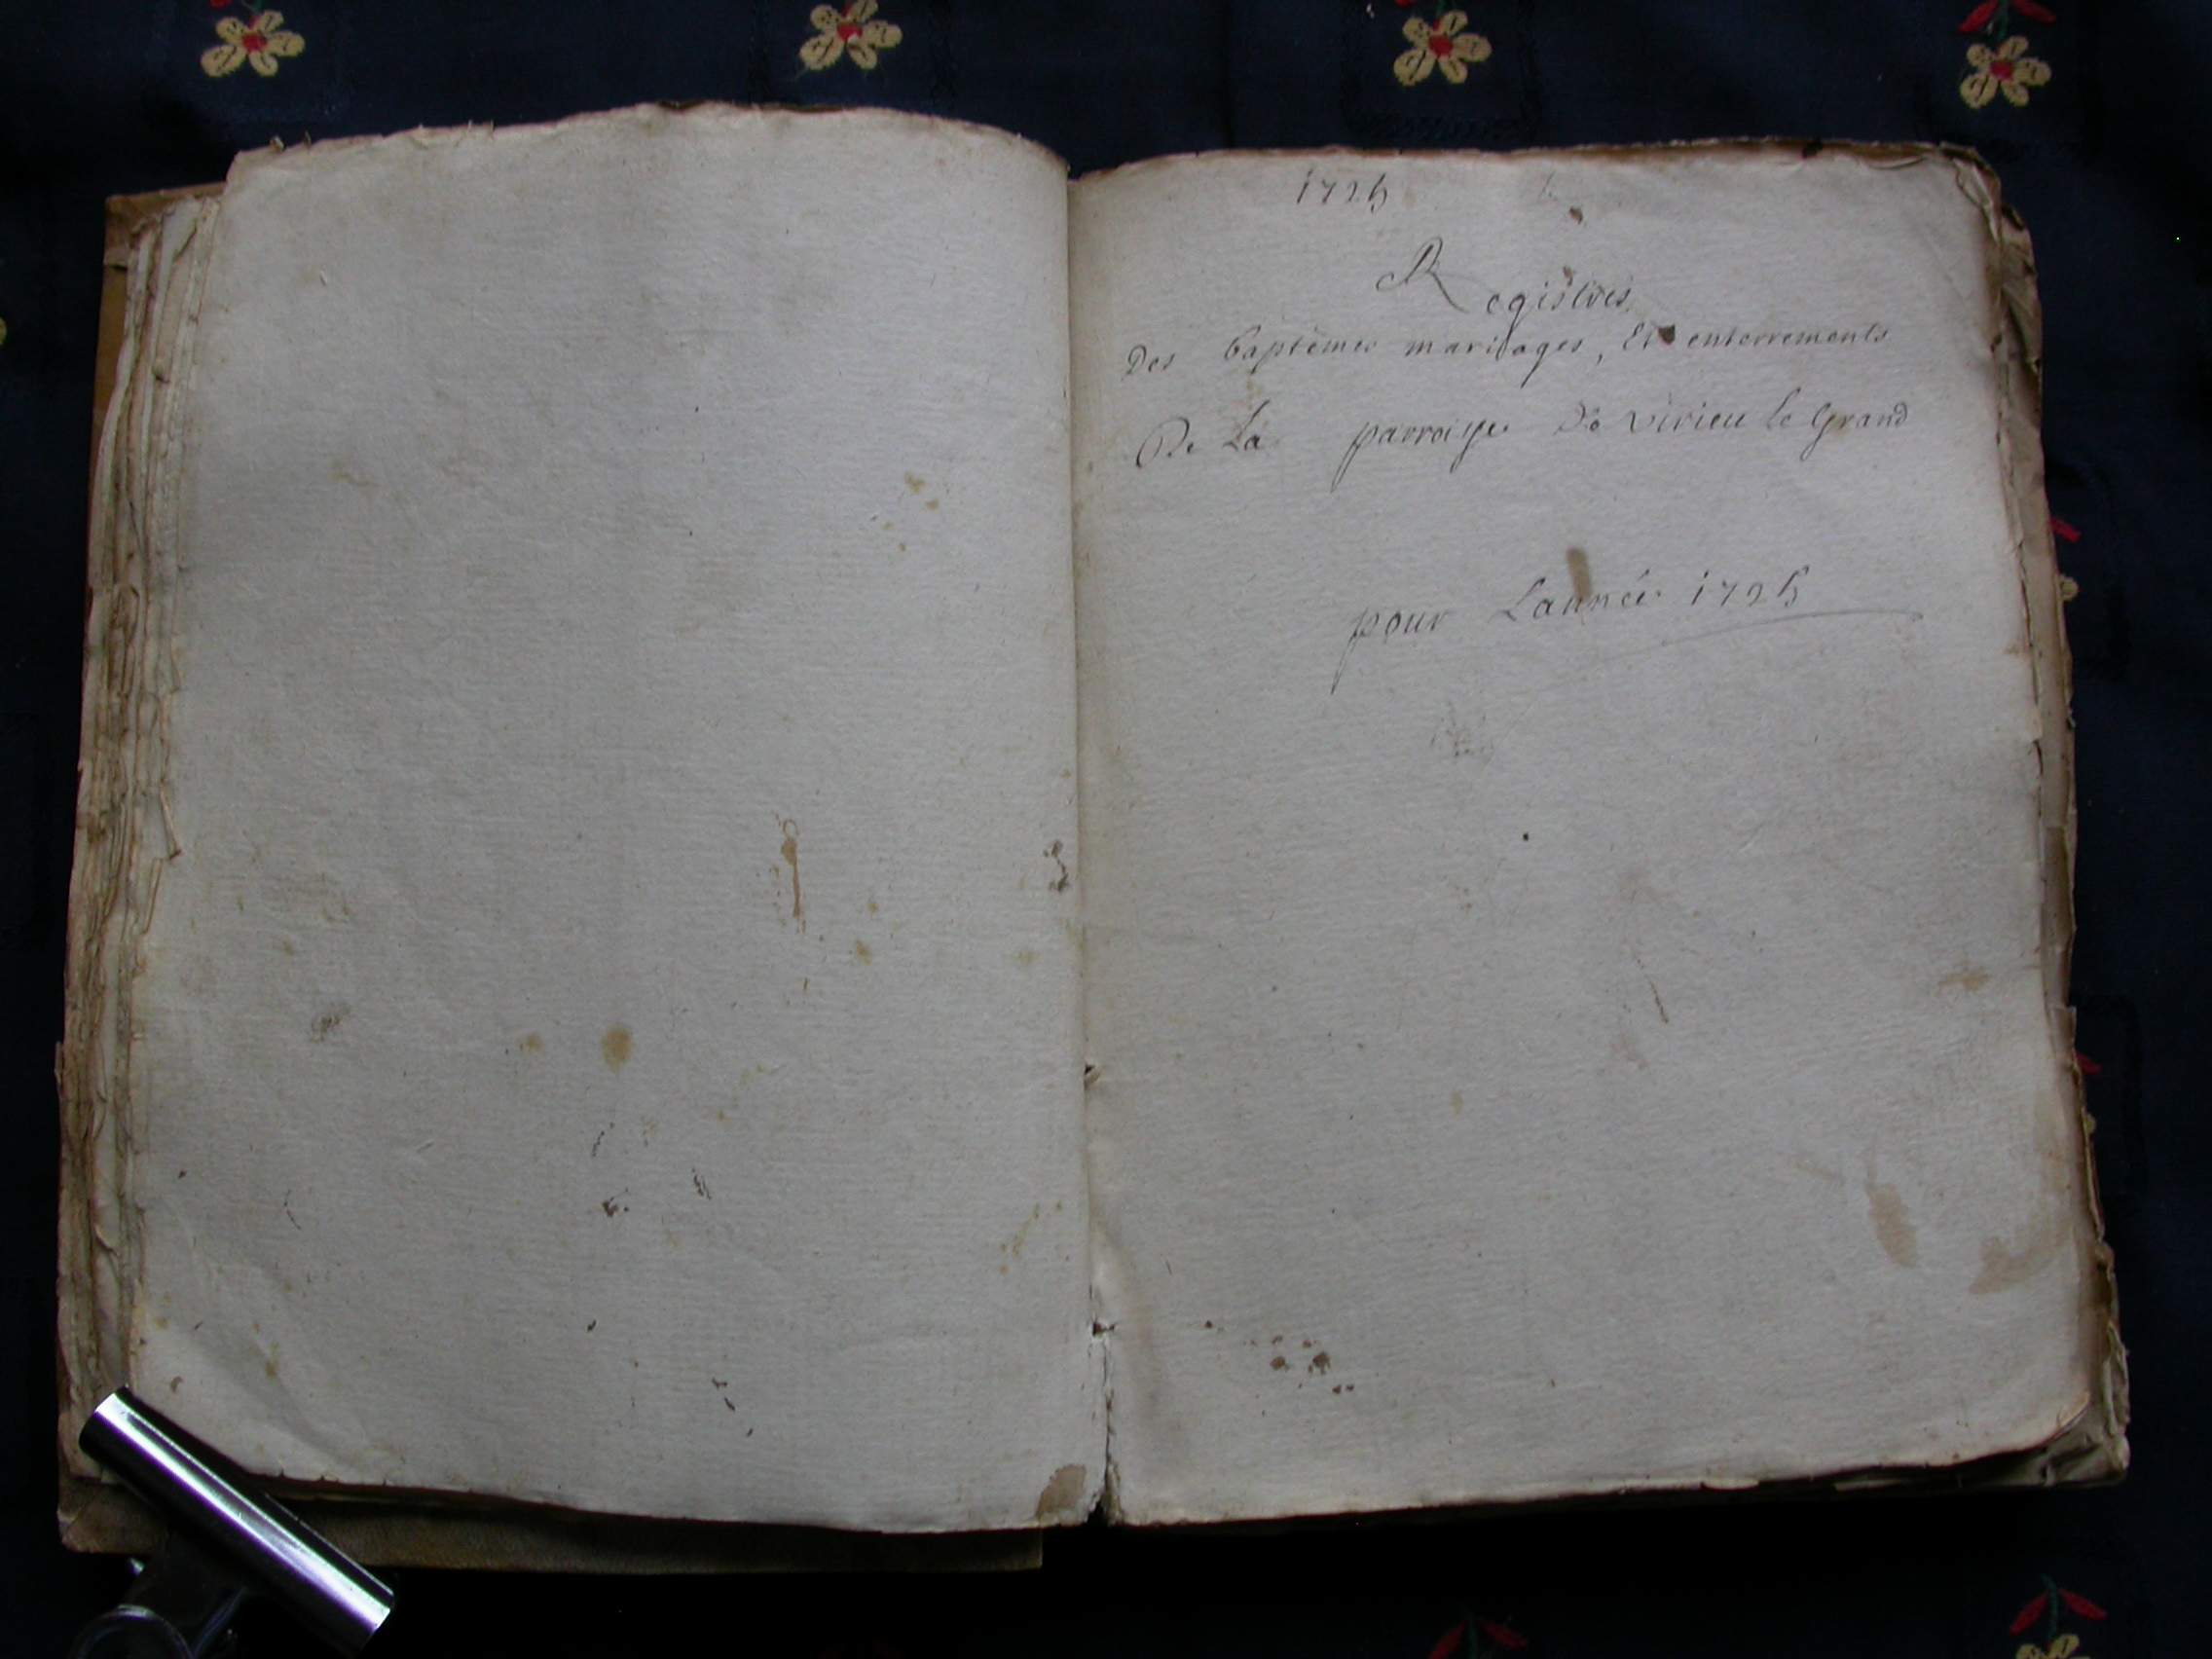 1725
Registres
Des baptêmes mariages, Et enterrements
De La parroisse De virieu le Grand
pour Lannée 1725